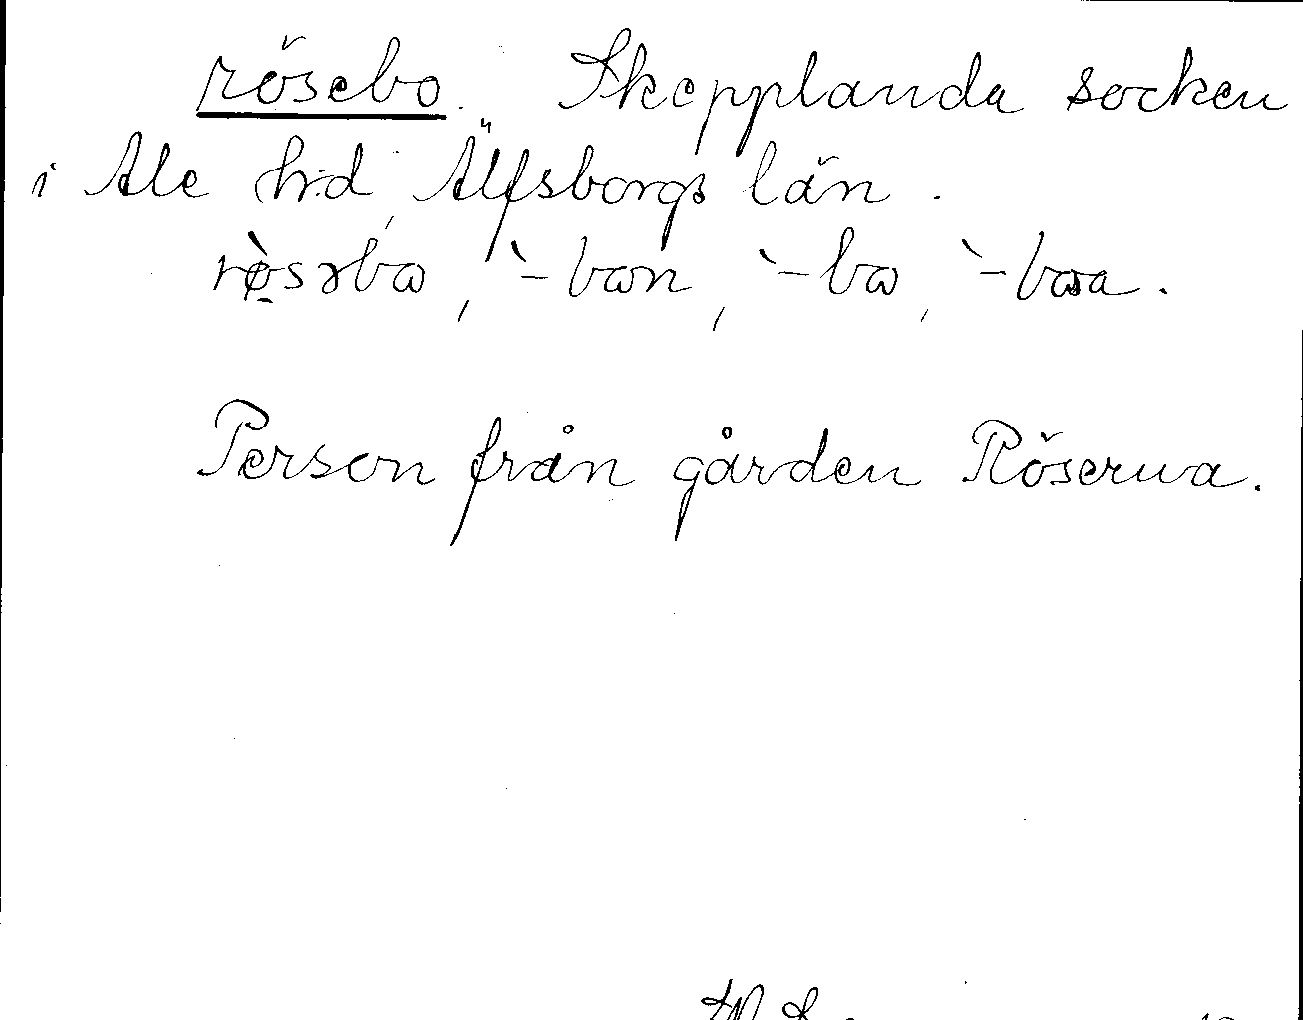 rösebo. Skepplanda socken
i Ale hrd, Älfsborgs län.
rø̀səbɷ, `-bɷn, `-bɷ, `-bɷa.
Person från gården Röserna.